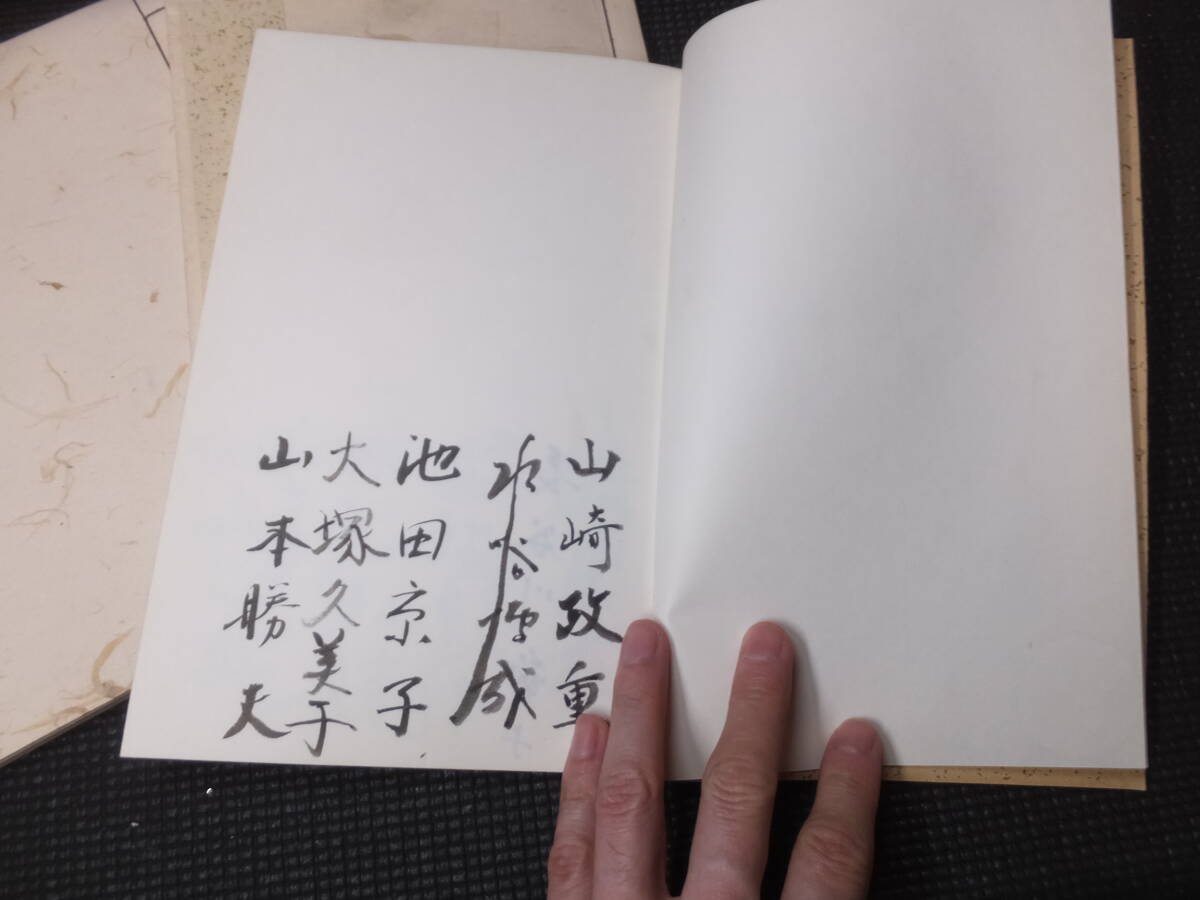 山崎政重
池田京子
大塚久美子
山本勝夫